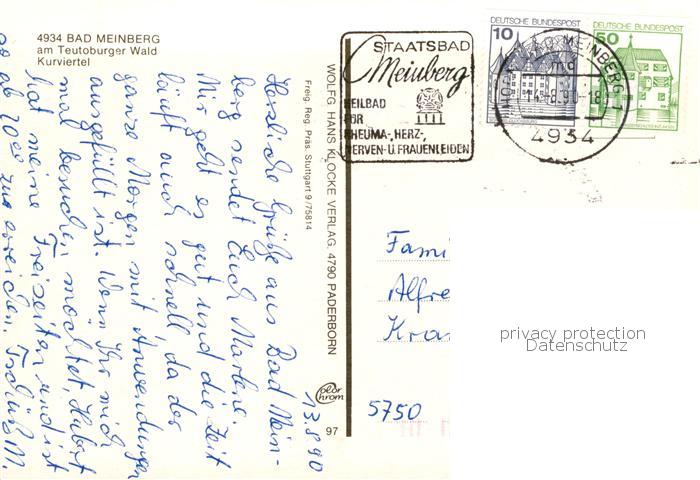 4934 BAD MEINBERG
am Teutoburger Wald
Kurviertel
13.8.90
Herzliche Grüße aus Bad Mein-
berg sendet Euch Marlene.
Mir geht es gut und die Zeit
läuft auch schnell da der
ganze Morgen mit Anwendungen
ausgefüllt ist. Wenn Ihr mich
mal besuchen möchtet, Hubert
hat meine Freizeiten und ist
so ab 20 00 zu erreichen. Tschüß M.
Freig. Reg. Präs. Stuttgart 9/75814
WOLFG. HANS KLOCKE VERLAG, 4790 PADERBORN
color
chrom
97
STAATSBAD
Meinberg
HEILBAD
FÜR
RHEUMA-, HERZ-,
NERVEN- U. FRAUENLEIDEN
DEUTSCHE BUNDESPOST
10
DEUTSCHE BUNDESPOST
50
BAD MEINBERG 1
md
4934
Fami
Alfre
Kra
5750
privacy protection
Datenschutz